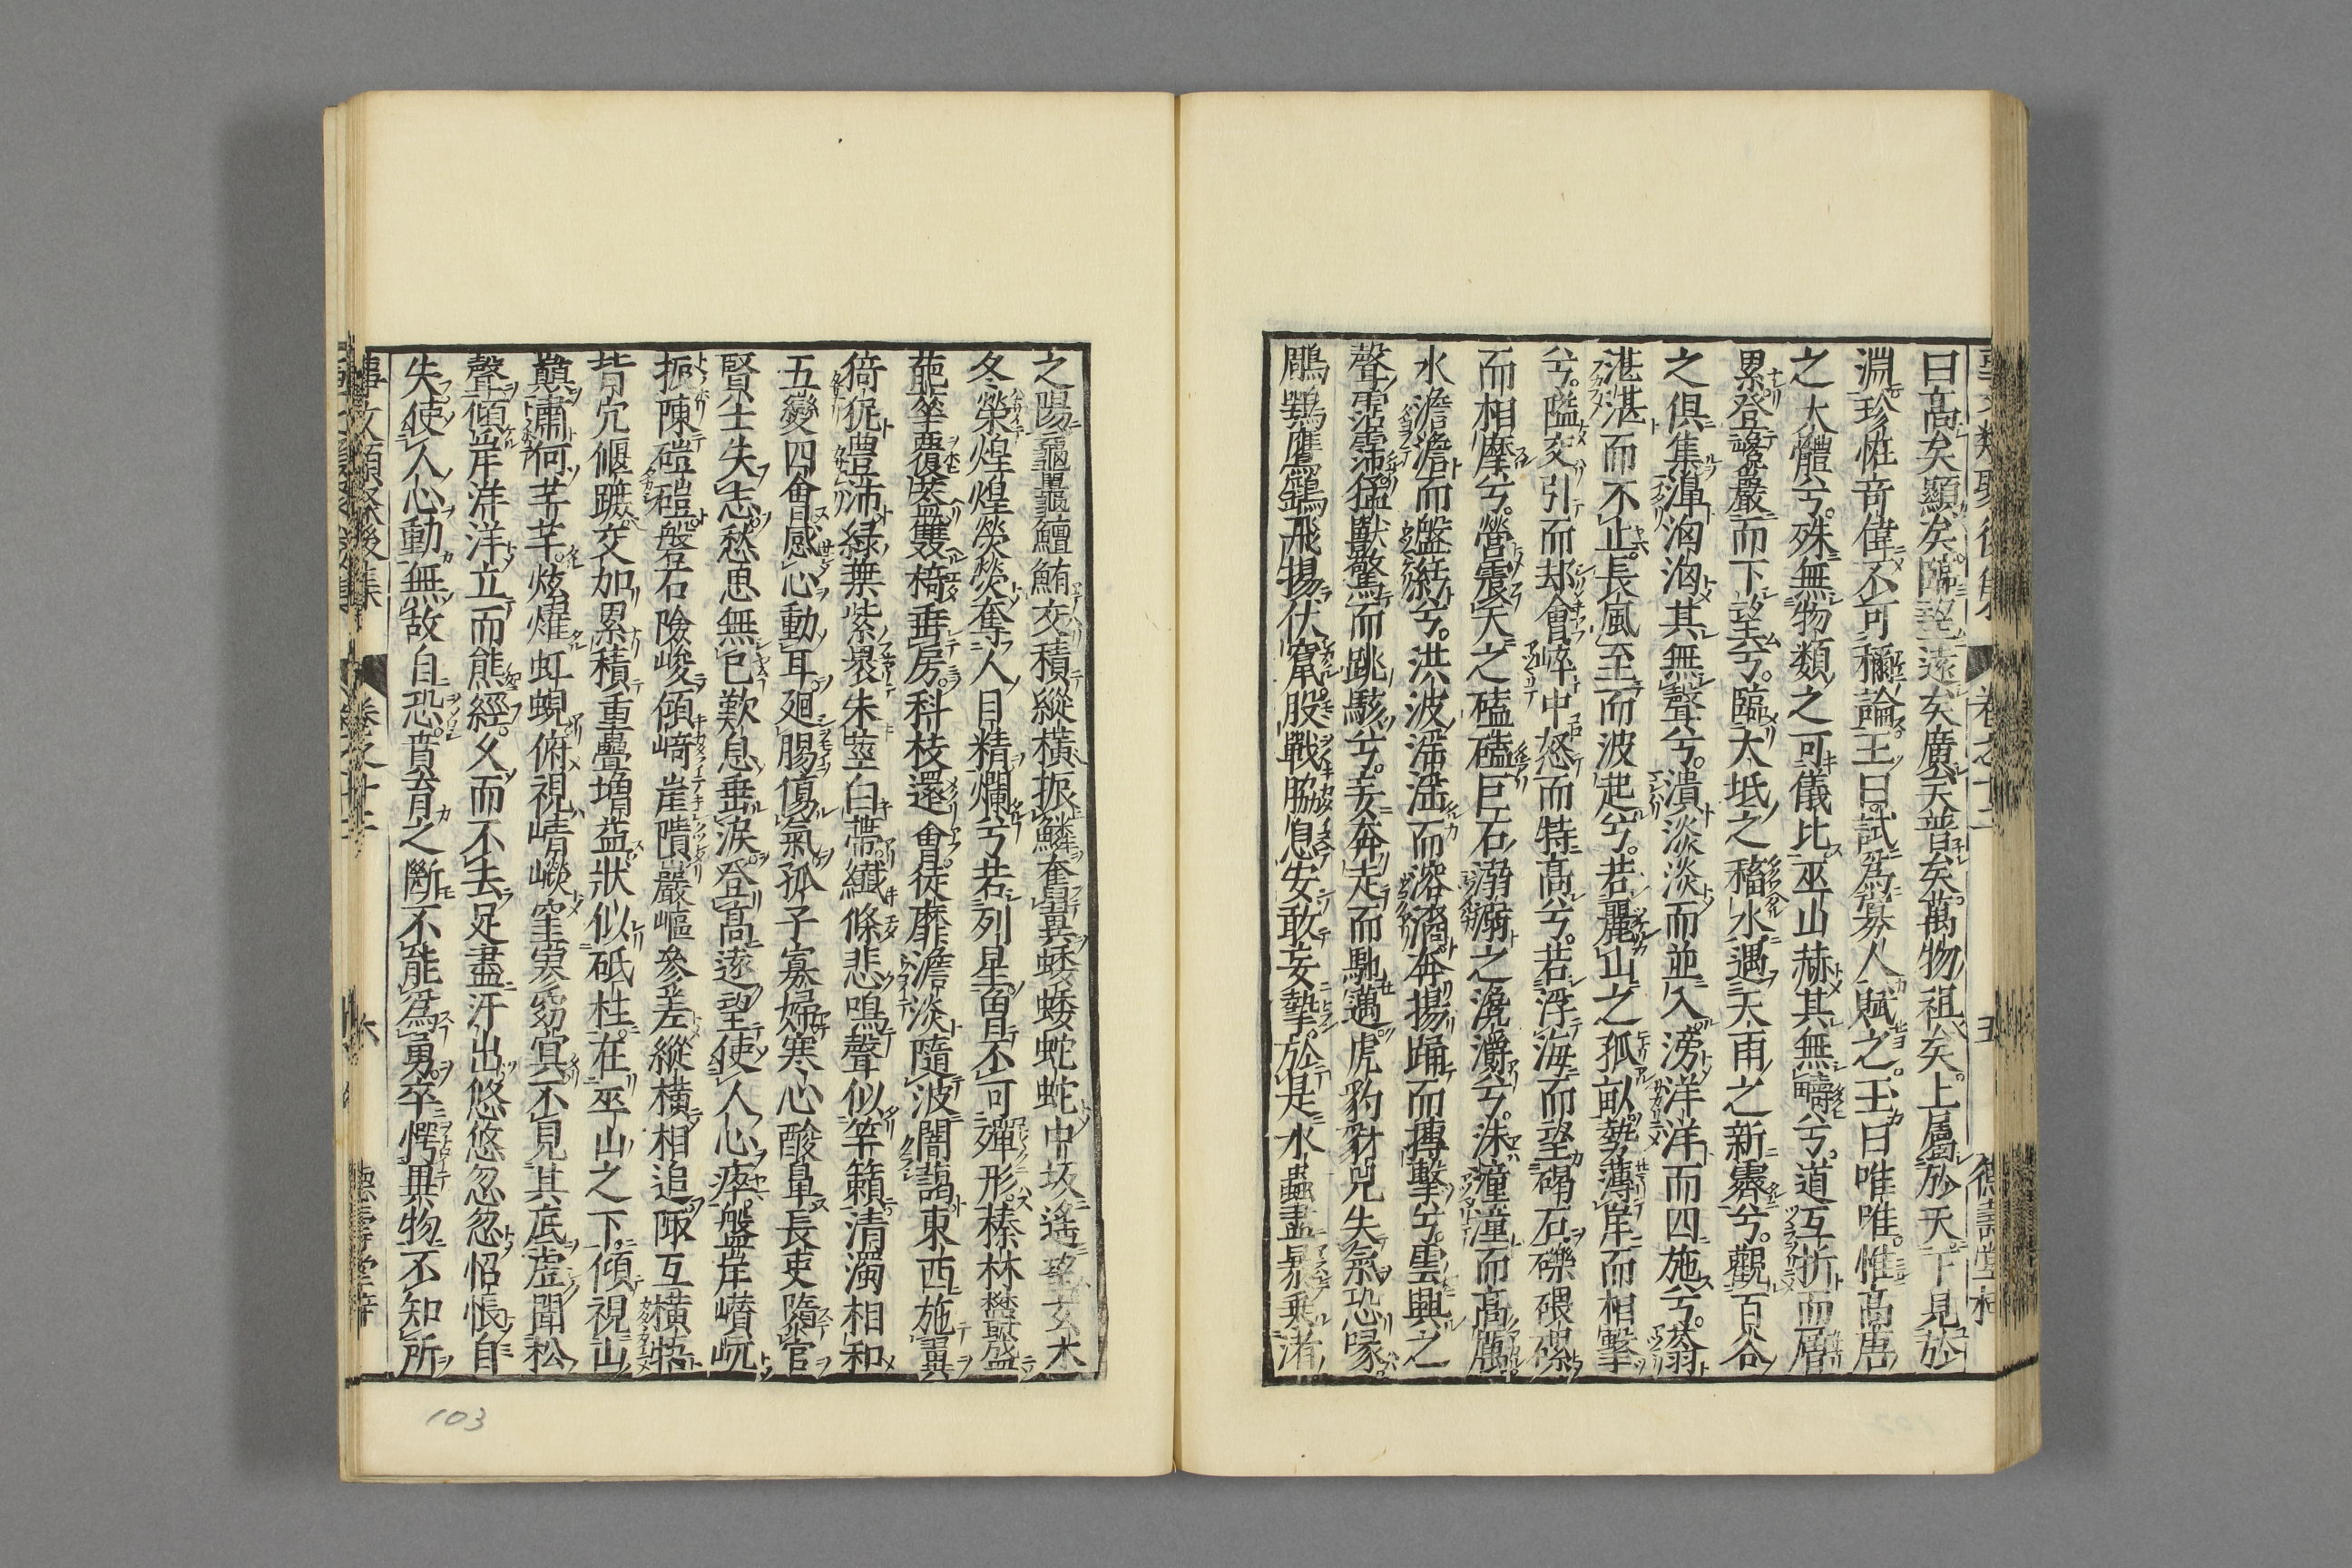 曰高矣顯矣臨望遠矣廣矣普矣萬物祖矣上屬於天下見於
淵珍怪奇偉不可稱論王曰試爲寡人賦之玉曰唯唯惟高唐
之大體兮殊無物類之可儀比巫山赫其無疇兮道互折而層
累登巉巖而下望兮臨大坻之稸水遇天雨之新霽兮觀百谷
之俱集濞洶洶其無聲兮潰淡淡而並入滂洋洋而四施兮蓊
湛湛而不止長風至而波起兮若麗山之孤畝勢薄岸而相擊
兮隘交引而却會崪中怒而特高兮若浮海而望碣石礫磥磥
而相摩兮巆震天之磕磕巨石溺溺之瀺灂兮沫潼潼而高厲
水澹澹而盤紆兮洪波淫淫而溶㵝奔揚踊而相擊兮雲興之
聲霈霈猛獸驚而跳駭兮妄奔走而馳邁虎豹豺兕失氣恐喙
鵰鶚鷹鷂飛揚伏竄股戰脇息安敢妄摯於是水蟲盡暴乗渚
之陽黿鼉鱣鮪交積縱橫振鱗奮翼蜲蜲蛇蛇中坂遙望玄木
冬榮煌煌熒熒奪人目精爛兮若列星曽不可殫形榛林鬱盛
葩華覆蓋雙椅垂房糾枝還會徙靡澹淡隨波闇藹東西施翼
猗狔豐沛緑葉紫裹朱莖白蔕纖條悲鳴聲似竽籟清濁相和
五變四會感心動耳廻腸傷氣孤子寡婦寒心酸鼻長吏隳官
賢士失志愁思無已歎息垂淚登高遠望使人心瘁盤岸巑岏
振陳磑磑磐石險峻傾崎崖隤巖嶇參差縱橫相追陬互橫牾
背穴偃蹠交加累積重疊増益狀似砥柱在巫山之下傾視山
巔肅何芊芊炫燿虹蜺俯視崝嶸窐寥窈冥不見其底虚聞松
聲傾岸洋洋立而熊經久而不去足盡汗出悠悠忽忽怊悵自
失使人心動無故自恐賁育之斷不能爲勇卒愕異物不知所
103